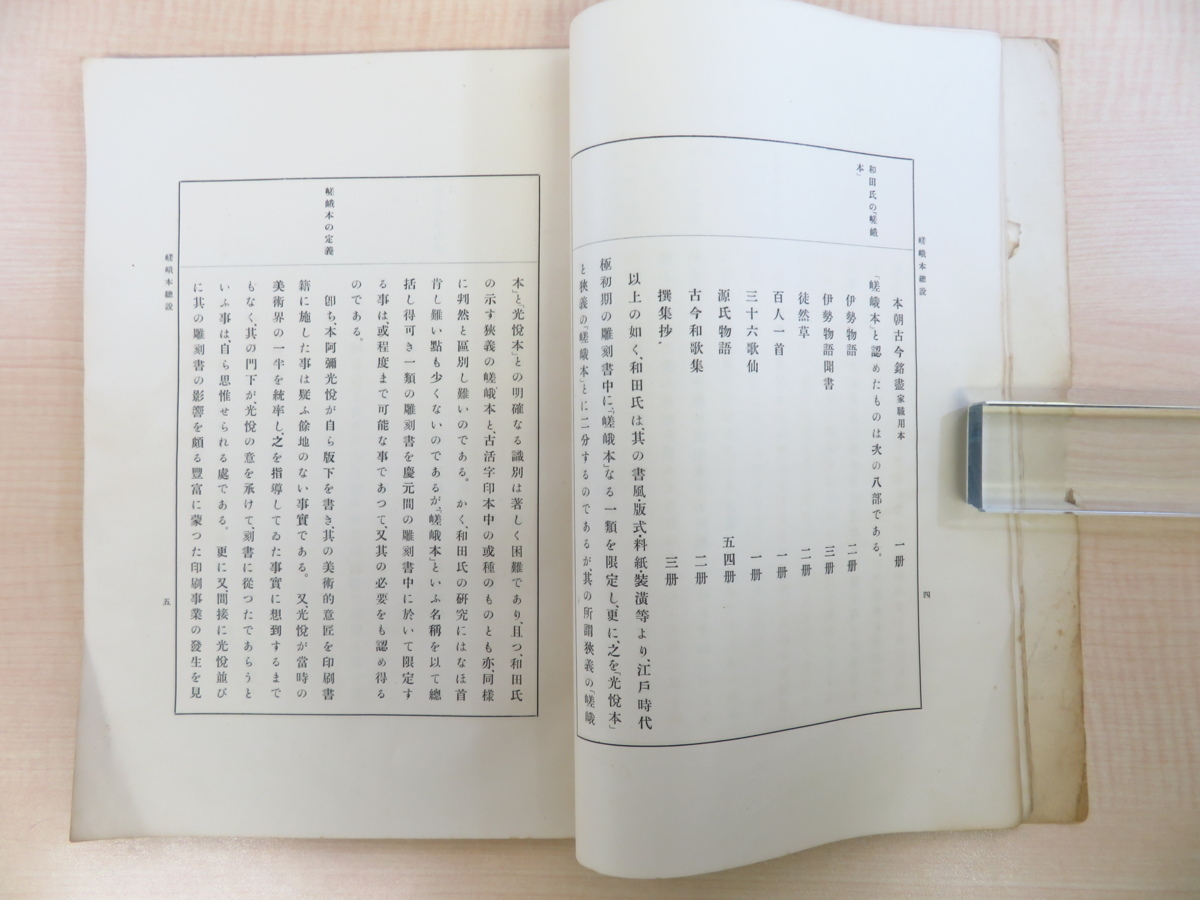 嵯峨本總説
四
和田氏の「嵯峨
本」
本朝古今銘盡 家職用本 一册
「嵯峨本」と認めたものは次の八部である。
伊勢物語 二册
伊勢物語聞書 三册
徒然草 二册
百人一首 一册
三十六歌仙 一册
源氏物語 五四册
古今和歌集 二册
撰集抄 三册
以上の如く、和田氏は、其の書風・版式・料紙・裝潢等より、江戸時代
極初期の雕刻書中に、「嵯峨本」なる一類を限定し、更に、之を「光悅本」
と狹義の「嵯峨本」とに二分するのであるが、其の所謂狹義の「嵯峨
嵯峨本の定義
本」と「光悅本」との明確なる識別は著しく困難であり、且つ、和田氏
の示す狹義の嵯峨本と、古活字印本中の或種のものとも亦、同樣
に判然と區別し難いのである。かく、和田氏の研究にはなほ首
肯し難い點も少くないのであるが、「嵯峨本」といふ名稱を以て總
括し得可き一類の雕刻書を慶元間の雕刻書中に於いて限定す
る事は、或程度まで可能な事であつて、又其の必要をも認め得る
のである。
卽ち、本阿彌光悅が自ら版下を書き、其の美術的意匠を印刷書
籍に施した事は疑ふ餘地のない事實である。又、光悅が當時の
美術界の一半を統率し、之を指導してゐた事實に想到するまで
もなく、其の門下が、光悅の意を承けて、刻書に從つたであらうと
いふ事は、自ら思惟せられる處である。更に又、間接に光悅並び
に其の雕刻書の影響を頗る豐富に蒙つた印刷事業の發生を見
嵯峨本總説
五